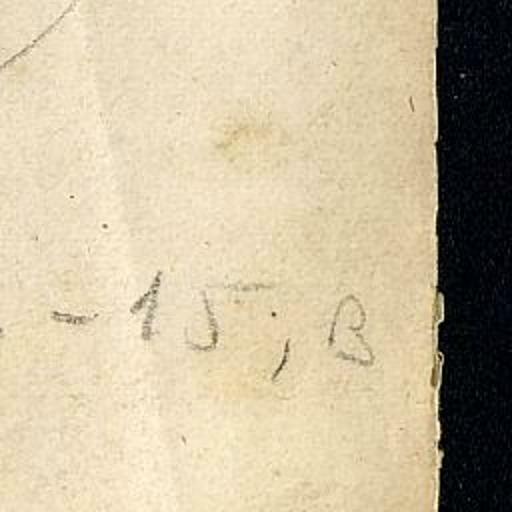 -15; B